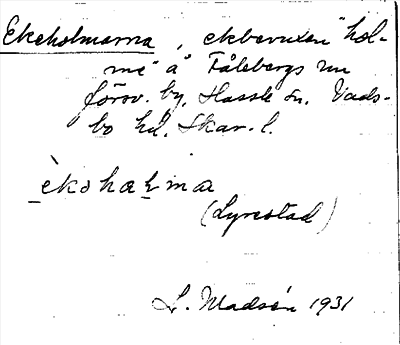 Ekeholmarna, ekbevuxen "hol-
me" å Fålebergs nu
försv. by, Hassle sn. Vads-
bo hd. Skar. l.
èkohaḷma
(Lyrestad)
L. Madsén 1931